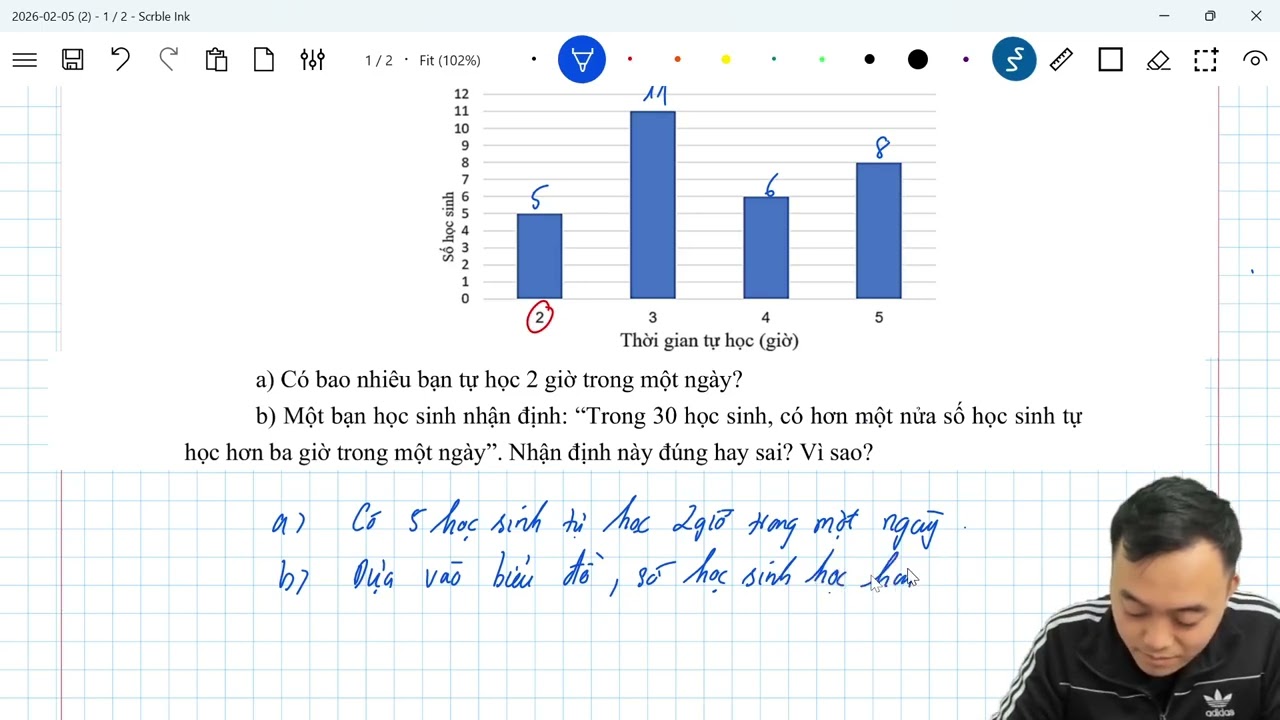 2026-02-05 (2) - 1 / 2 - Scrble Ink
1 / 2 · Fit (102%)
12
11
10
9
8
7
6
5
4
3
2
1
0
Số học sinh
5
11
6
8
2
3
4
5
Thời gian tự học (giờ)
a) Có bao nhiêu bạn tự học 2 giờ trong một ngày?
b) Một bạn học sinh nhận định: “Trong 30 học sinh, có hơn một nửa số học sinh tự
học hơn ba giờ trong một ngày”. Nhận định này đúng hay sai? Vì sao?
a) Có 5 học sinh tự học 2 giờ trong một ngày.
b) Dựa vào biểu đồ, số học sinh học
adidas